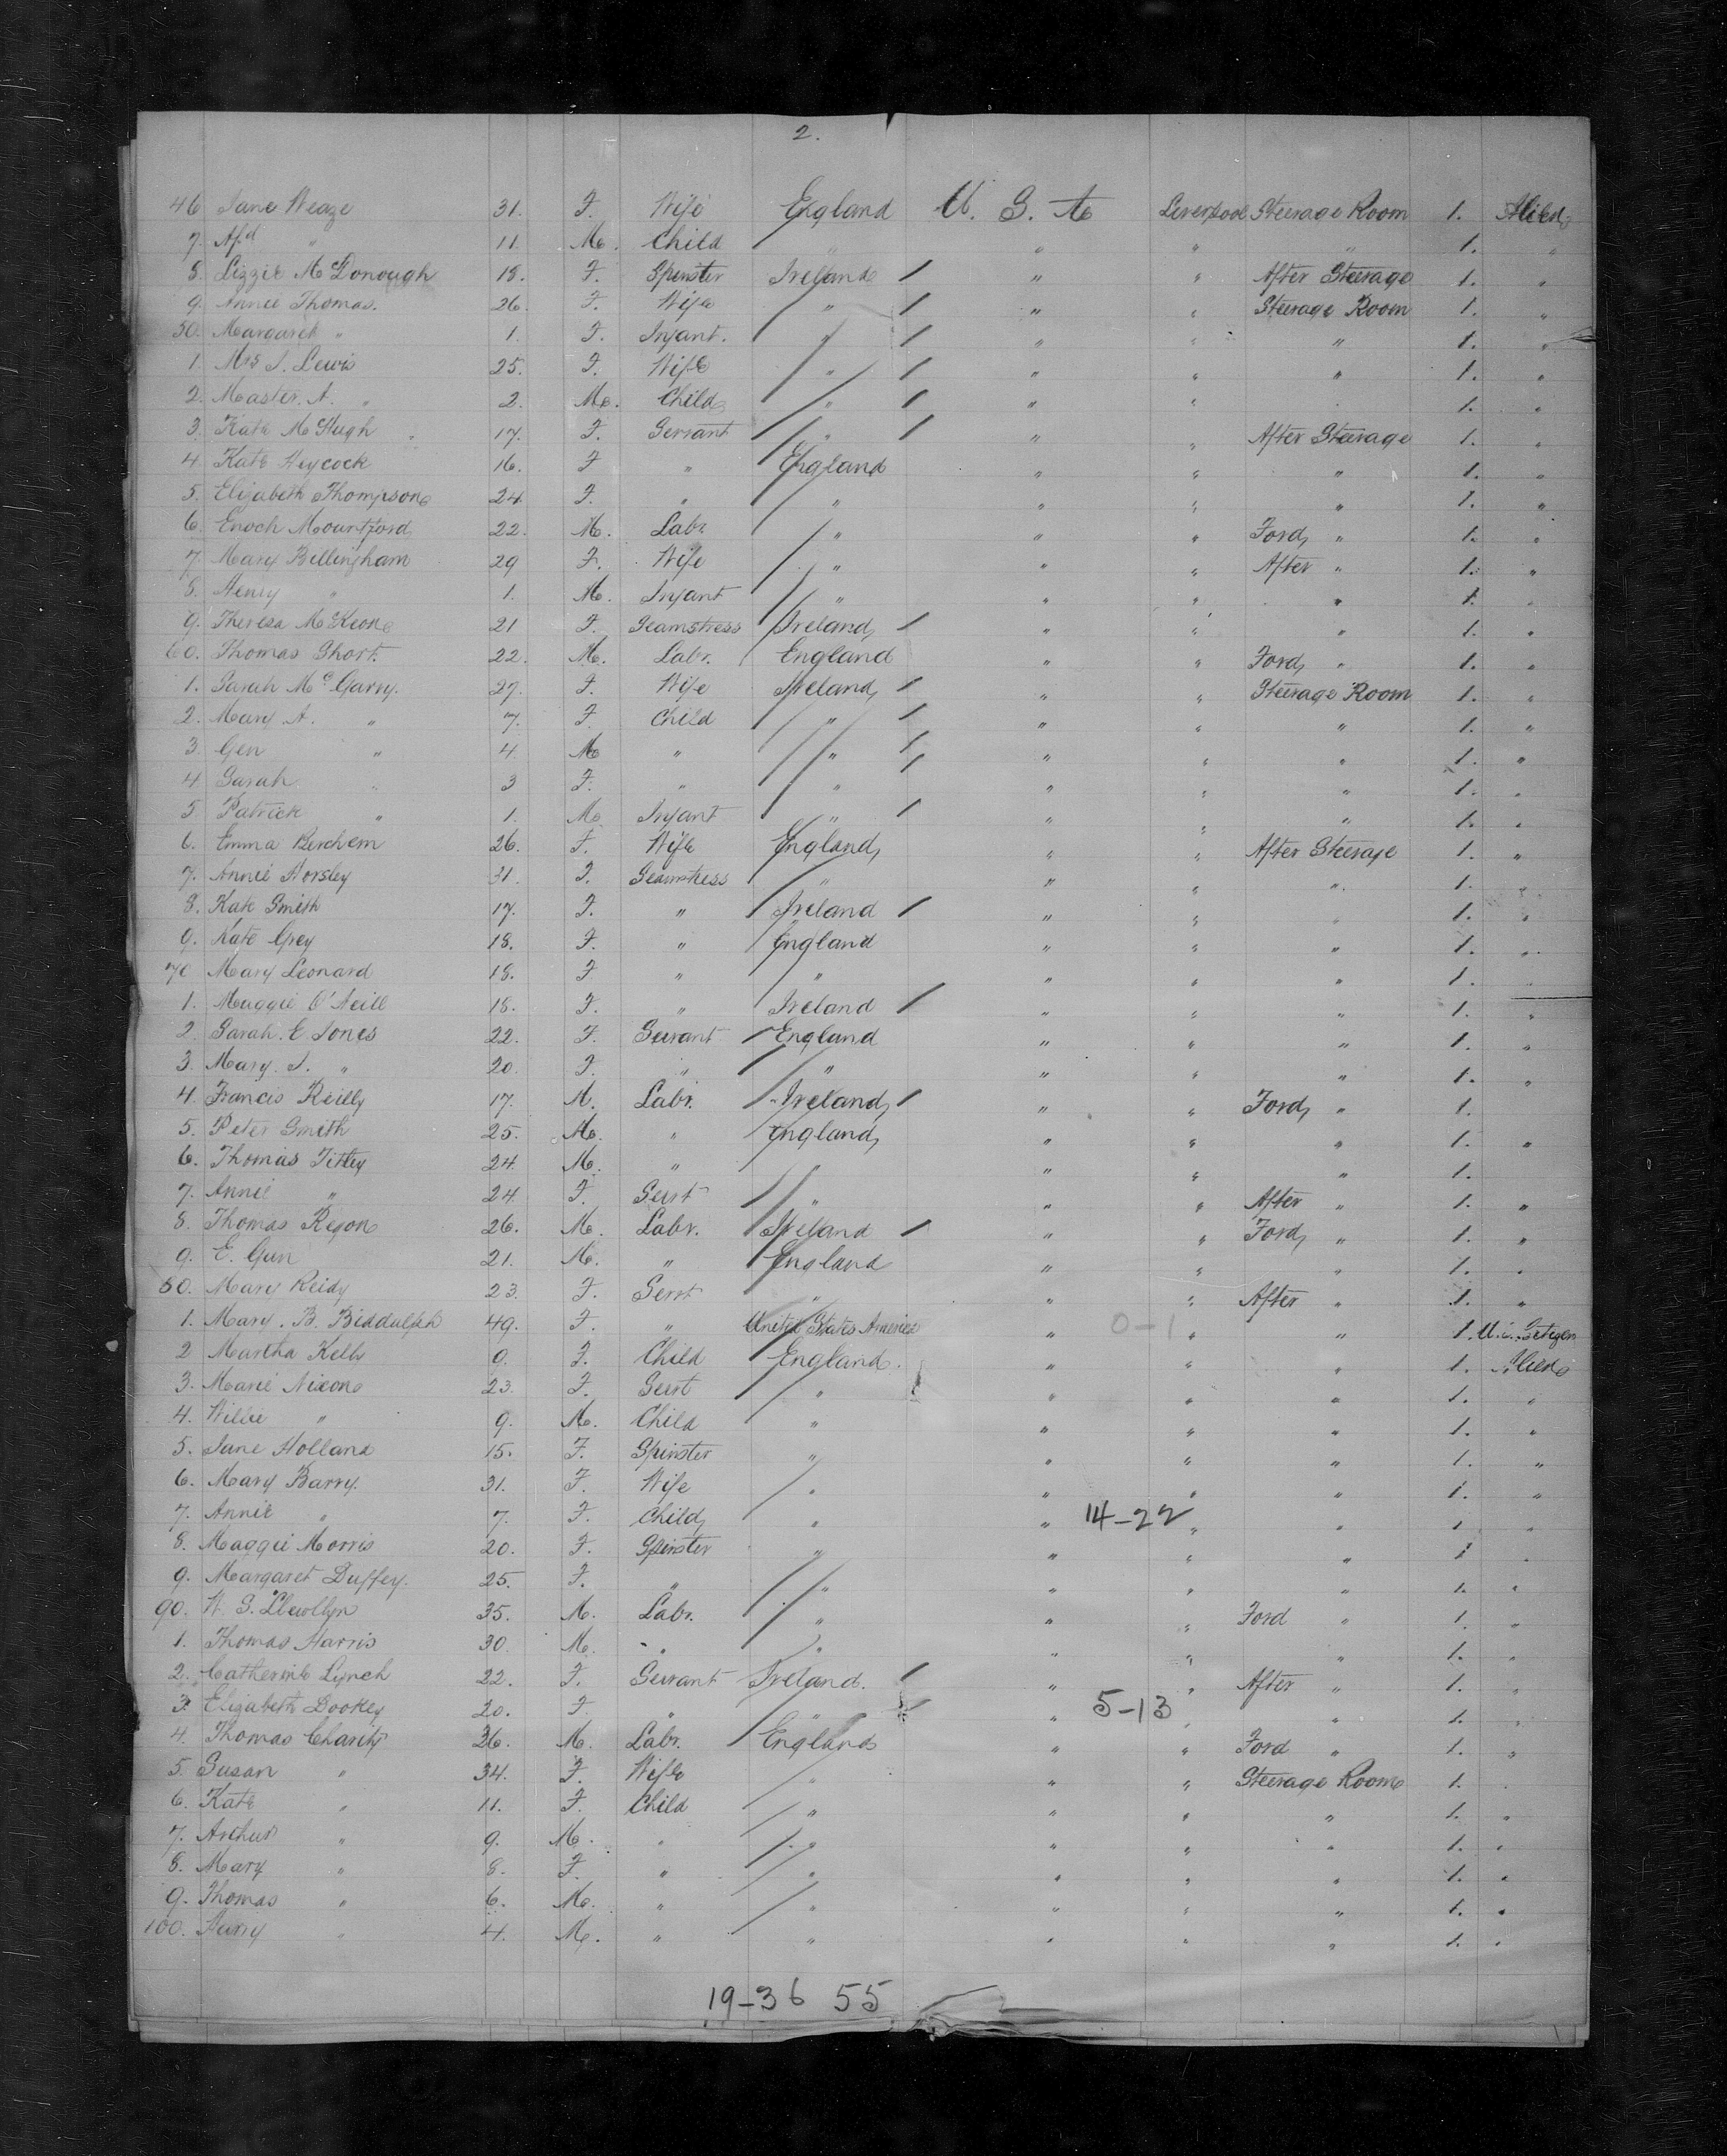 2.
46 Jane Weaze 31. F. Wife England U. S. A Liverpool Steerage Room 1. Alien
7. Alfd " 11. M. Child " " " " 1. "
8. Lizzie McDonough 18. F. Spinster Ireland / " " After Steerage 1. "
9. Annie Thomas. 26. F. Wife " / " " Steerage Room 1. "
50. Margaret " 1. F. Infant. " / " " " 1. "
1. Mrs J. Lewis 25. F. Wife " / " " " 1. "
2. Master. A. " 2. M. Child " / " " 1. "
3. Kate McHugh 17. F. Servant " / " " After Steerage 1. "
4. Kate Heycock 16. F " England " " " 1. "
5. Elizabeth Thompson 24. F. " " " " " 1. "
6. Enoch Mountford 22. M. Labr. " " " Ford " 1. "
7. Mary Billingham 29 F. Wife " " " After " 1. "
8. Henry " 1. M. Infant " " " " 1. "
9. Theresa McKeon 21 F. Seamstress Ireland / " " " 1. "
60. Thomas Short. 22. M. Labr. England " " Ford " 1. "
1. Sarah McGarry. 27. F. Wife Ireland / " " Steerage Room 1. "
2. Mary A. " 7. F. Child " / " " " 1. "
3. Gen " 4. M " " / " " " 1. "
4. Sarah " 3 F. " " / " " " 1. "
5. Patrick " 1. M. Infant " / " " " 1. "
6. Emma Berchem 26. F. Wife England " " After Steerage 1. "
7. Annie Horsley 31. F. Seamstress " " " " 1. "
8. Kate Smith 17. F. " Ireland / " " " 1. "
9. Kate Grey 18. F. " England " " " 1. "
70 Mary Leonard 18. F " " " " " 1. "
1. Maggie O'Neill 18. F. " Ireland / " " " 1. "
2. Sarah. E Jones 22. F. Servant England " " " 1. "
3. Mary. J. " 20. F. " " " " " 1. "
4. Francis Reilly 17. M. Labr. Ireland / " " Ford " 1.
5. Peter Smith 25. M. " England " " " 1. "
6. Thomas Titley 24. M. " " " " 1.
7. Annie " 24. F. Servt " " " After " 1. "
8. Thomas 26. M. Labr. Ireland / " " Ford " 1. "
9. E. Gun 21. M. " England " " " 1. "
80. Mary Reidy 23. F. Servt " " " After " 1. "
1. Mary. B. Biddulph 49. F. " United States America " 0-1 " " 1. U.S. Citizen
2 Martha Kells 9. F. Child England. " " " 1. Alien
3. Marie Nixon 23. F. Servt " " " " 1. "
4. Willie " 9. M. Child " " " " 1. "
5. Jane Holland 15. F. Spinster " " " " 1. "
6. Mary Barry. 31. F. Wife " " " " 1. "
7. Annie " 7. F. Child " " 14-22 " " 1. "
8. Maggie Morris 20. F. Spinster " " " " 1 "
9. Margaret Duffey. 25. F. " " " " " 1. "
90. W. S. Llewllyn 35. M. Labr. " " " Ford " 1. "
1. Thomas Harris 30. M. " " " " " 1. "
2. Catherine Lynch 22. F. Servant Ireland. / " " After " 1. "
3. Elizabeth Dooley 20. F. " " / " 5-13 " " 1. "
4. Thomas Charity 36. M. Labr. England " " Ford " 1. "
5. Susan " 34. F. Wife " " " Steerage Room 1. "
6. Kate " 11. F. Child " " " " 1. "
7. Arthur " 9. M. " " " " " 1. "
8. Mary " 8. F. " " " " " 1. "
9. Thomas " 6. M. " " " " " 1. "
100. Harry " 4. M. " " " " " 1. "
19-36 55